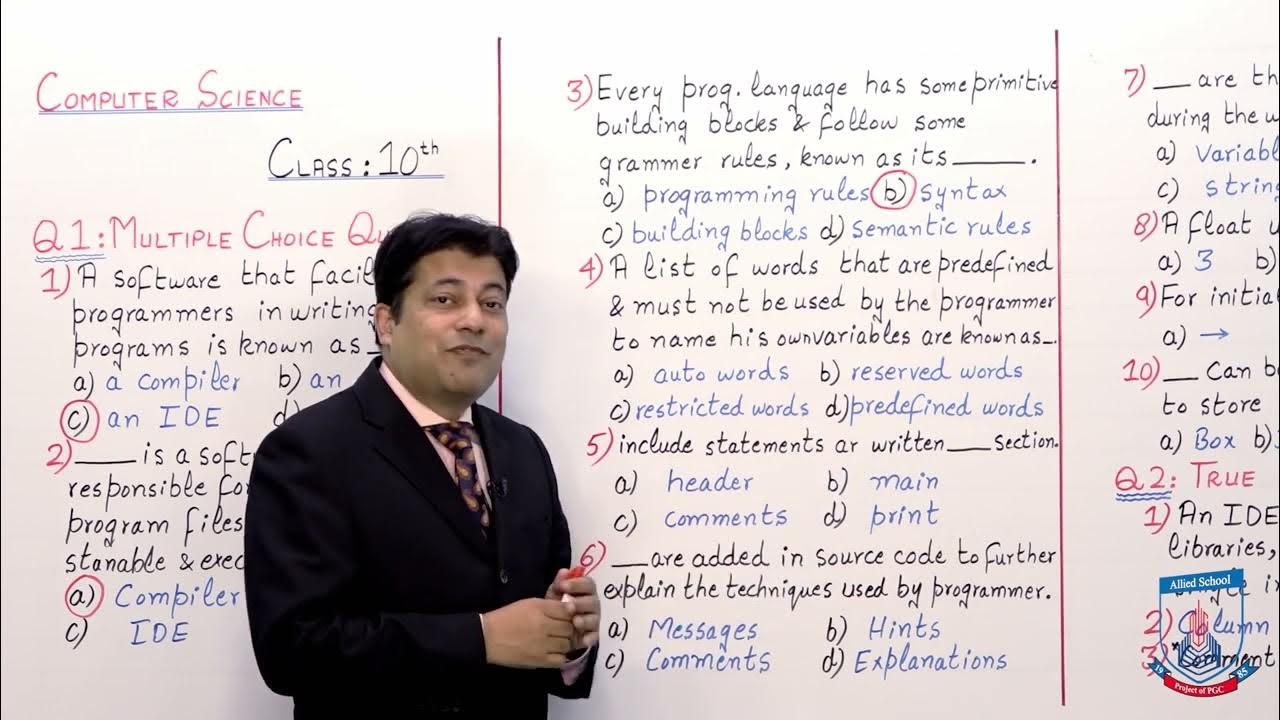 COMPUTER SCIENCE
CLASS: 10th
Q1: MULTIPLE CHOICE
1) A software that
programmers in writing
programs is known as_
a) a compiler b) an
c) an IDE d)
2) ____ is a
responsible for
program files
stanable &
a) Compiler
c) IDE
3) Every prog. language has some primitive
building blocks & follow some
grammer rules, known as its ____.
a) programming rules b) syntax
c) building blocks d) Semantic rules
4) A list of words that are predefined
& must not be used by the programmer
to name his own variables are known as_.
a) auto words b) reserved words
c) restricted words d) predefined words
5) include statements ar written ___ section.
a) header b) main
c) comments d) print
6) ___ are added in source code to further
explain the techniques used by programmer.
a) Messages b) Hints
c) Comments d) Explanations
7) ___ are
during the
a)
c)
8) A float
a) 3 b)
9) For
a) →
10) ___ can
to store
a) Box b)
Q2: TRUE
1) An IDE
libraries,
2)
3)
Allied School
19 85
Project of PGC